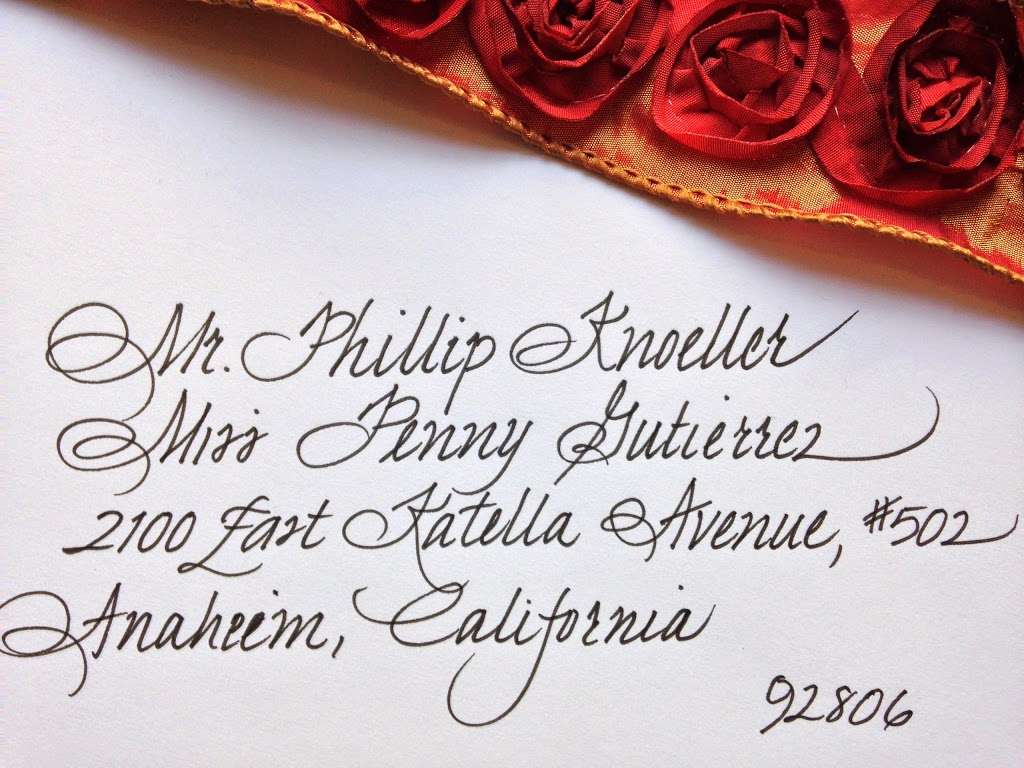 Mr. Phillip Knoeller
Miss Penny Gutierrez
2100 East Katella Avenue, #502
Anaheim, California
92806